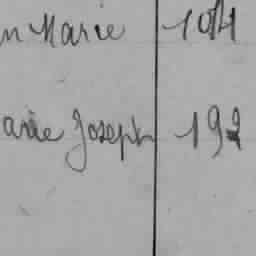 n Marie 104
arie Joseph 192